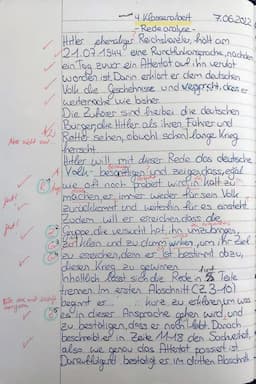 4. Klassenarbeit 7.06.2012
- Redeanalyse -
Hitler, ehemaliger Reichskanzler, hält am
21.07.1944 eine Rundfunkansprache, nachdem
ein Tag zuvor ein Attentat auf ihn verübt
worden ist. Darin erklärt er dem deutschen
Volk die Geschehnisse und verspricht, dass er
weitermache wie bisher.
Die Zuhörer sind hierbei die deutschen
Bürger, die Hitler als ihren Führer und
Retter sehen, obwohl schon lange Krieg
herrscht.
Hitler will mit dieser Rede das deutsche
Volk besänftigen und zeigen, dass, egal
wie oft noch probiert wird, ihn kalt zu
machen, er immer wieder für sein Volk
zurückkommt und weiterhin für es einsteht.
Zudem will er erreichen, dass die
Gruppe, die versucht hat, ihn umzubringen,
zu klein und zu dumm wirken, um ihr Ziel
zu erreichen, denn er ist bestimmt dazu,
diesen Krieg zu gewinnen.
Inhaltlich lässt sich die Rede in Teile
trennen. Im ersten Abschnitt (Z. 3-10)
beginnt er kurz zu erklären, um was
es in dieser Ansprache gehen wird, und
zu bestätigen, dass er noch lebt. Danach
beschreibt er in Zeile 11-18 den Sachverhalt,
also, wie genau das Attentat passiert ist.
Darauffolgend bestätigt er im dritten Abschnitt